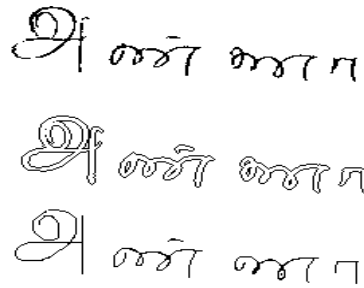 அண்ணா
அண்ணா
அண்ணா